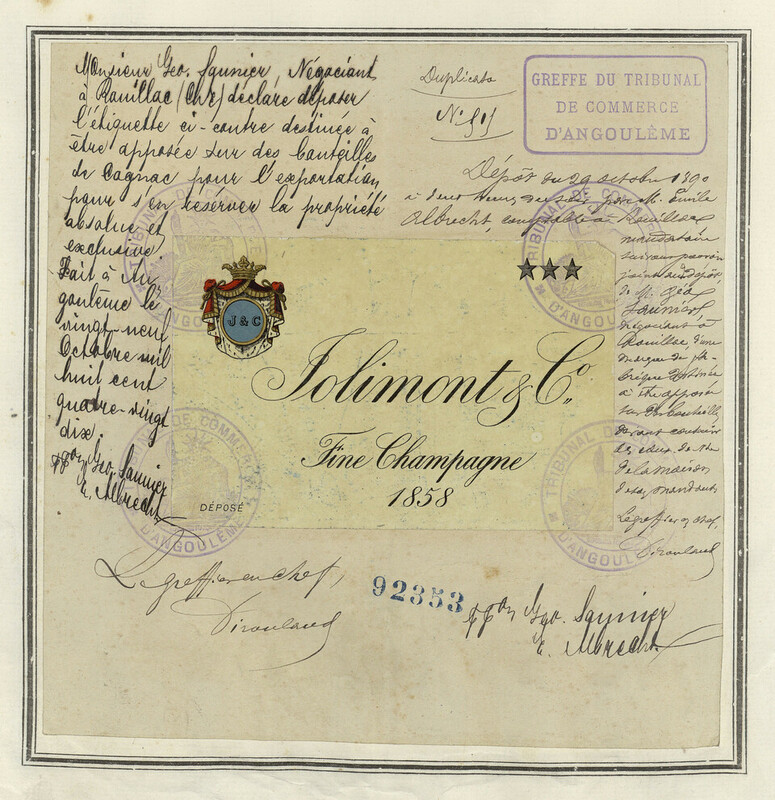 Monsieur Geo. Saunier, Négociant
à Rouillac (Chte) déclare déposer
l'étiquette ci-contre destinée à
être apposée sur des bouteilles
de Cognac pour l'exportation
pour s'en réserver la propriété
absolue et
exclusive.
Fait à An
goulême le
vingt-neuf
Octobre mil
huit cent
quatre-vingt
dix
ppon Geo. Saunier
E. Albrecht
Duplicata
GREFFE DU TRIBUNAL
DE COMMERCE
D'ANGOULÊME
Dépôt du 29 octobre 1890
à deux heures du soir par M. Emile
Albrecht, comptable à Rouillac
mandataire
suivant pouvoir
joint au dépôt
de M. Géo
Saunier
négociant à
Rouillac d'une
marque de fa-
brique destinée
à être apposée
sur des bouteilles
devant contenir
de la maison
Le greffier en chef,
TRIBUNAL DE COMMERCE
D'ANGOULÊME
TRIBUNAL DE COMMERCE
D'ANGOULÊME
J & C
Jolimont & Co.,
Fine Champagne
1858
DÉPOSÉ
TRIBUNAL DE COMMERCE
D'ANGOULÊME
TRIBUNAL DE COMMERCE
D'ANGOULÊME
Le greffier en chef,
92353
ppon Geo. Saunier
E. Albrecht